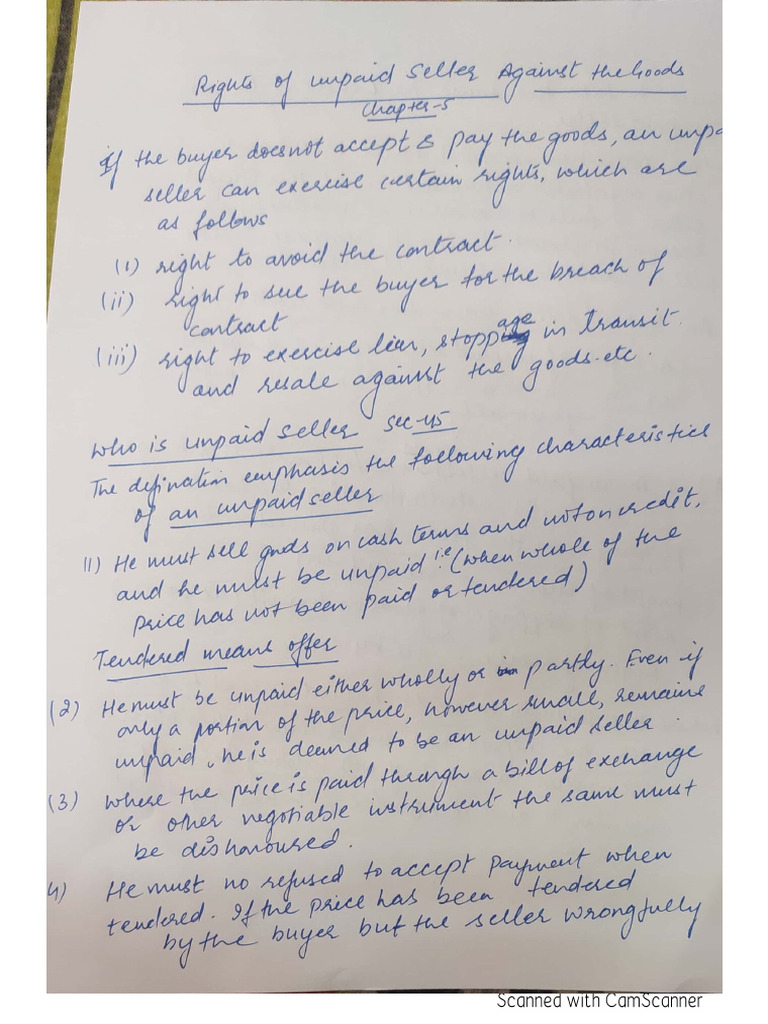 Rights of unpaid seller Against the Goods
Chapter-5
If the buyer doesnot accept & pay the goods, an unpa
seller can exercise certain rights, which are
as follows
(i) right to avoid the contract.
(ii) right to sue the buyer for the breach of
contract
(iii) right to exercise lien, stoppage in transit
and resale against the goods.etc.
Who is unpaid seller sec-45
The defination emphasis the following characteristics
of an unpaid seller
11) He must sell goods on cash terms and not on credit,
and he must be unpaid i.e (when whole of the
price has not been paid or tendered)
Tendered means offer
(2) He must be unpaid either wholly or partly. Even if
only a portion of the price, however small, remains
unpaid, he is deemed to be an unpaid seller.
(3) Where the price is paid through a bill of exchange
or other negotiable instrument the same must
be dishonoured.
4) He must no refused to accept payment when
tendered. If the price has been tendered
by the buyer but the seller wrongfully
Scanned with CamScanner